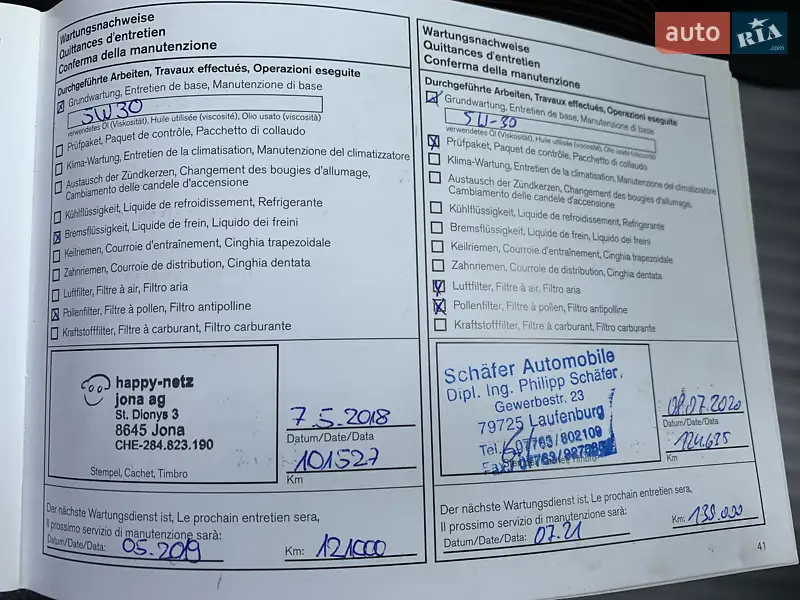 Wartungsnachweise
Quittances d'entretien
Conferma della manutenzione
Durchgeführte Arbeiten, Travaux effectués, Operazioni eseguite
Grundwartung, Entretien de base, Manutenzione di base
5W30
verwendetes Öl (Viskosität), Huile utilisée (viscosité), Olio usato (viscosità)
Prüfpaket, Paquet de contrôle, Pacchetto di collaudo
Klima-Wartung, Entretien de la climatisation, Manutenzione del climatizzatore
Austausch der Zündkerzen, Changement des bougies d'allumage,
Cambiamento delle candele d'accensione
Kühlflüssigkeit, Liquide de refroidissement, Refrigerante
Bremsflüssigkeit, Liquide de frein, Liquido dei freini
Keilriemen, Courroie d'entraînement, Cinghia trapezoidale
Zahnriemen, Courroie de distribution, Cinghia dentata
Luftfilter, Filtre à air, Filtro aria
Pollenfilter, Filtre à pollen, Filtro antipolline
Kraftstofffilter, Filtre à carburant, Filtro carburante
happy-netz
jona ag
St. Dionys 3
8645 Jona
CHE-284.823.190
Stempel, Cachet, Timbro
7.5.2018
Datum/Date/Data
101527
Km
Der nächste Wartungsdienst ist, Le prochain entretien sera,
Il prossimo servizio di manutenzione sarà:
Datum/Date/Data: 05.2019 Km: 121000
Wartungsnachweise
Quittances d'entretien
Conferma della manutenzione
Durchgeführte Arbeiten, Travaux effectués, Operazioni eseguite
Grundwartung, Entretien de base, Manutenzione di base
5W-30
verwendetes Öl (Viskosität), Huile utilisée (viscosité), Olio usato (viscosità)
Prüfpaket, Paquet de contrôle, Pacchetto di collaudo
Klima-Wartung, Entretien de la climatisation, Manutenzione del climatizzatore
Austausch der Zündkerzen, Changement des bougies d'allumage,
Cambiamento delle candele d'accensione
Kühlflüssigkeit, Liquide de refroidissement, Refrigerante
Bremsflüssigkeit, Liquide de frein, Liquido dei freini
Keilriemen, Courroie d'entraînement, Cinghia trapezoidale
Zahnriemen, Courroie de distribution, Cinghia dentata
Luftfilter, Filtre à air, Filtro aria
Pollenfilter, Filtre à pollen, Filtro antipolline
Kraftstofffilter, Filtre à carburant, Filtro carburante
Schäfer Automobile
Dipl. Ing. Philipp Schäfer
Gewerbestr. 23
79725 Laufenburg
Tel. 07763/802109
Fax
08.07.2020
Datum/Date/Data
124.635
Km
Der nächste Wartungsdienst ist, Le prochain entretien sera,
Il prossimo servizio di manutenzione sarà:
Datum/Date/Data: 07.21 Km: 139.000
41
auto RIA
.com